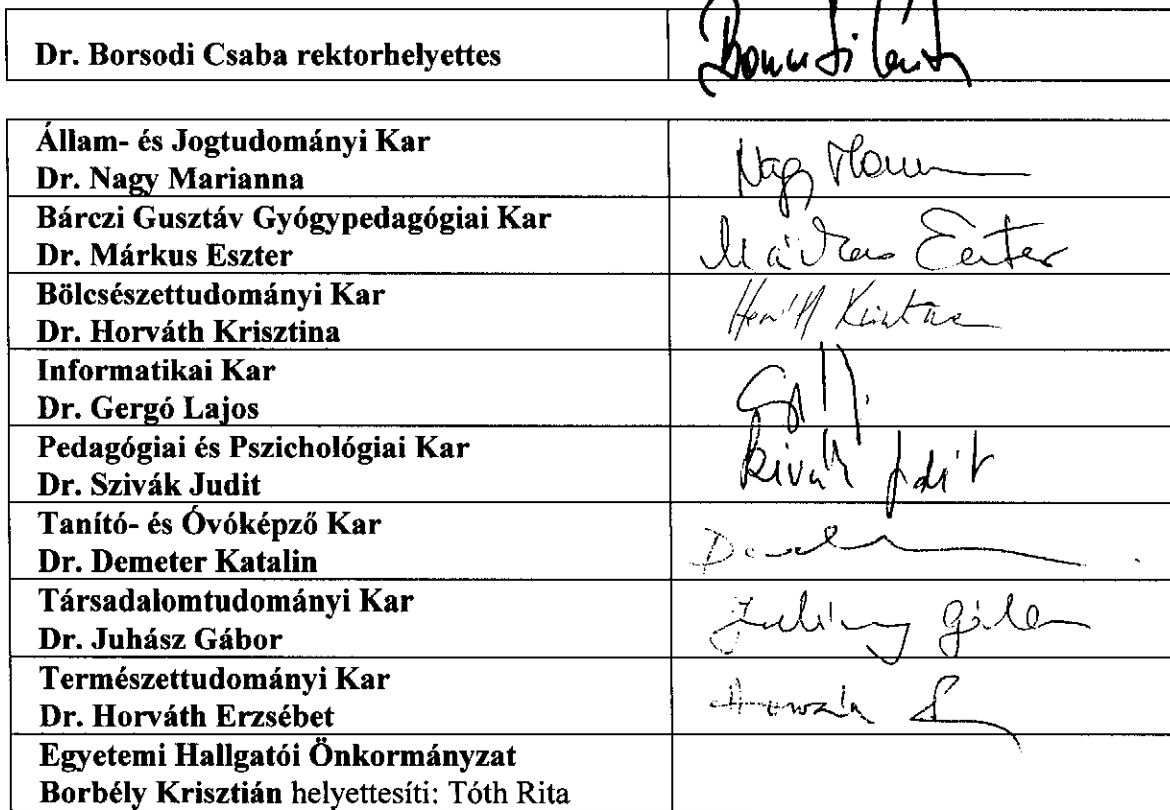 Dr. Borsodi Csaba rektorhelyettes
Állam- és Jogtudományi Kar
Dr. Nagy Marianna
Nagy
Bárczi Gusztáv Gyógypedagógiai Kar
Dr. Márkus Eszter
Márkus Eszter
Bölcsészettudományi Kar
Dr. Horváth Krisztina
Informatikai Kar
Dr. Gergó Lajos
Pedagógiai és Pszichológiai Kar
Dr. Szivák Judit
Tanító- és Óvóképző Kar
Dr. Demeter Katalin
Társadalomtudományi Kar
Dr. Juhász Gábor
Természettudományi Kar
Dr. Horváth Erzsébet
Egyetemi Hallgatói Önkormányzat
Borbély Krisztián helyettesíti: Tóth Rita